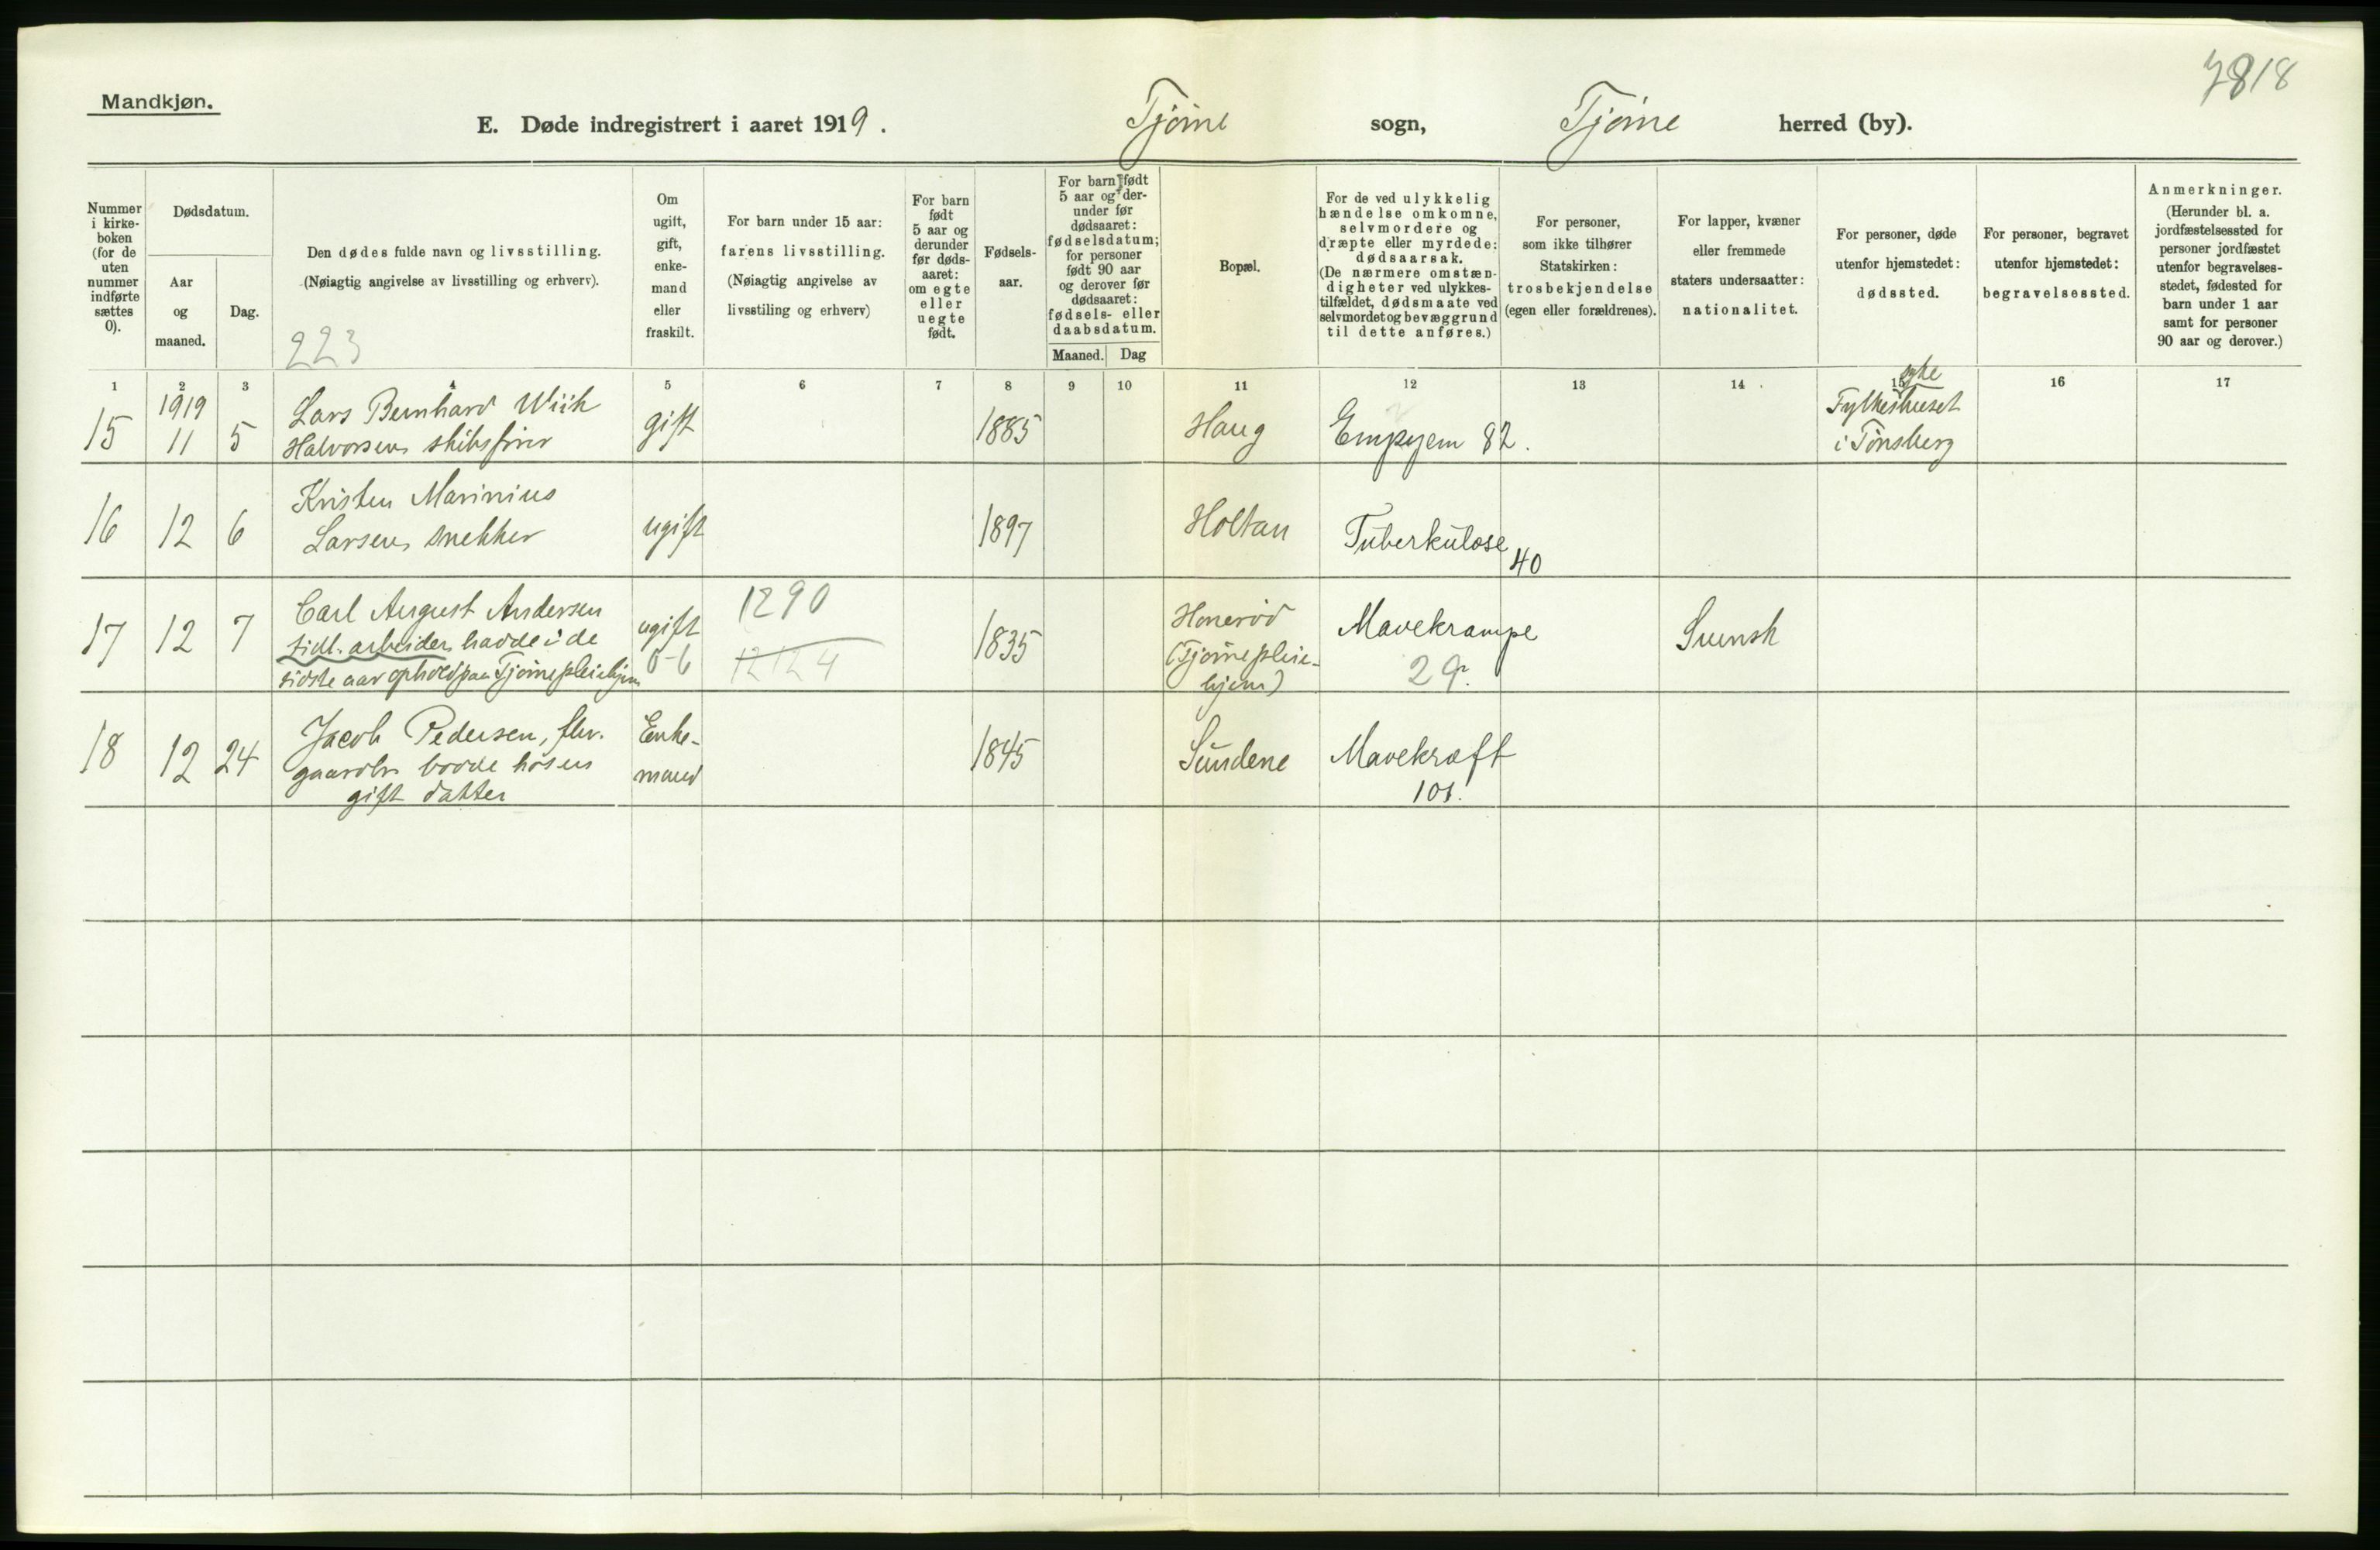 7818
Mandkjøn.
E. Døde indregistrert i aaret 1919. Tjøme sogn, Tjøme herred (by).
Nummer i kirke-boken (for de uten nummer indførte sættes 0).
Dødsdatum.
Aar og maaned.
Dag.
Den dødes fulde navn og livsstilling.
(Nøiagtig angivelse av livsstilling og erhverv).
223
Om ugift, gift, enke-mand eller fraskilt.
For barn under 15 aar:
farens livsstilling.
(Nøiagtig angivelse av
livsstiling og erhverv)
For barn født 5 aar og derunder før døds-aaret: om egte eller uegte født.
Fødsels-aar.
For barn født 5 aar og der-under før dødsaaret: fødselsdatum; for personer født 90 aar og derover før dødsaaret: fødsels- eller daabsdatum.
Maaned. Dag
Bopæl.
For de ved ulykkelig
hændelse omkomne,
selvmordere og
dræpte eller myrdede:
dødsaarsak.
(De nærmere omstæn-
digheter ved ulykkes-
tilfældet, dødsmaate ved
selvmordet og bevæggrund
til dette anføres.)
For personer,
som ikke tilhører
Statskirken:
trosbekjendelse
(egen eller forældrenes).
For lapper, kvæner
eller fremmede
staters undersaatter:
nationalitet.
For personer, døde
utenfor hjemstedet:
dødssted.
For personer, begravet
utenfor hjemstedet:
begravelsessted.
Anmerkninger.
(Herunder bl. a.
jordfæstelsessted for
personer jordfæstet
utenfor begravelses-
stedet, fødested for
barn under 1 aar
samt for personer
90 aar og derover.)
1 2 3 4 5 6 7 8 9 10 11 12 13 14 15 16 17
15 1919 11 5 Lars Bernhard Wiik
Halvorsen skibsfører gift 1885 Haug Empyem 82. Fylkessykehuset
i Tønsberg
16 12 6 Kristen Marinius
Larsen, snekker ugift 1897 Holtan Tuberkulose 40
17 12 7 Carl August Andersen
tidl. arbeider, havde i de
sidste aar ophold paa Tjøme pleiehjem ugift 0-6 1290
12124 1835 Honerød
(Tjøme pleie-
hjem) Mavekrampe
29. Svensk
18 12 24 Jacob Pedersen, fhv.
gaardbr. bodde hos en
gift datter Enke-
mand 1845 Sundene Mavekræft
101.